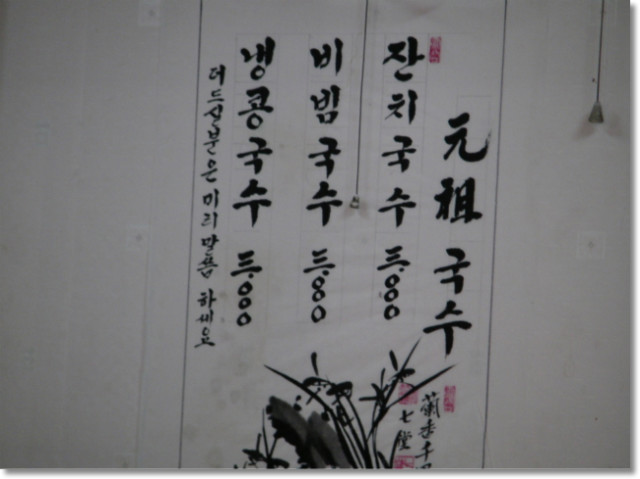 元祖 국수
잔치국수 三.000
비빔국수 三.000
냉콩국수 三.000
더 드실분은 미리 말씀 하세요
蘭香千
七堂